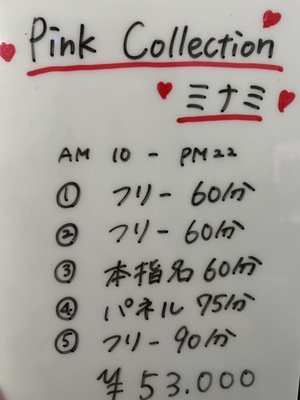 Pink Collection
ミナミ
AM 10 - PM 22
① フリー 60分
② フリー 60分
③ 本指名 60分
④ パネル 75分
⑤ フリー 90分
¥ 53.000